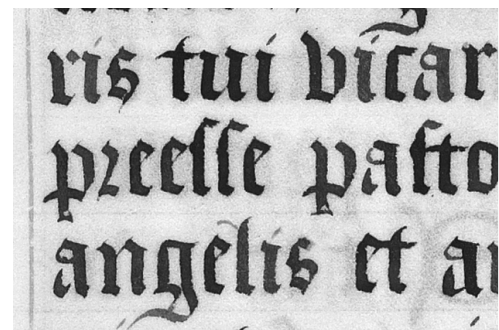 ris tui vicar
preeſſe paſto
angelis et a